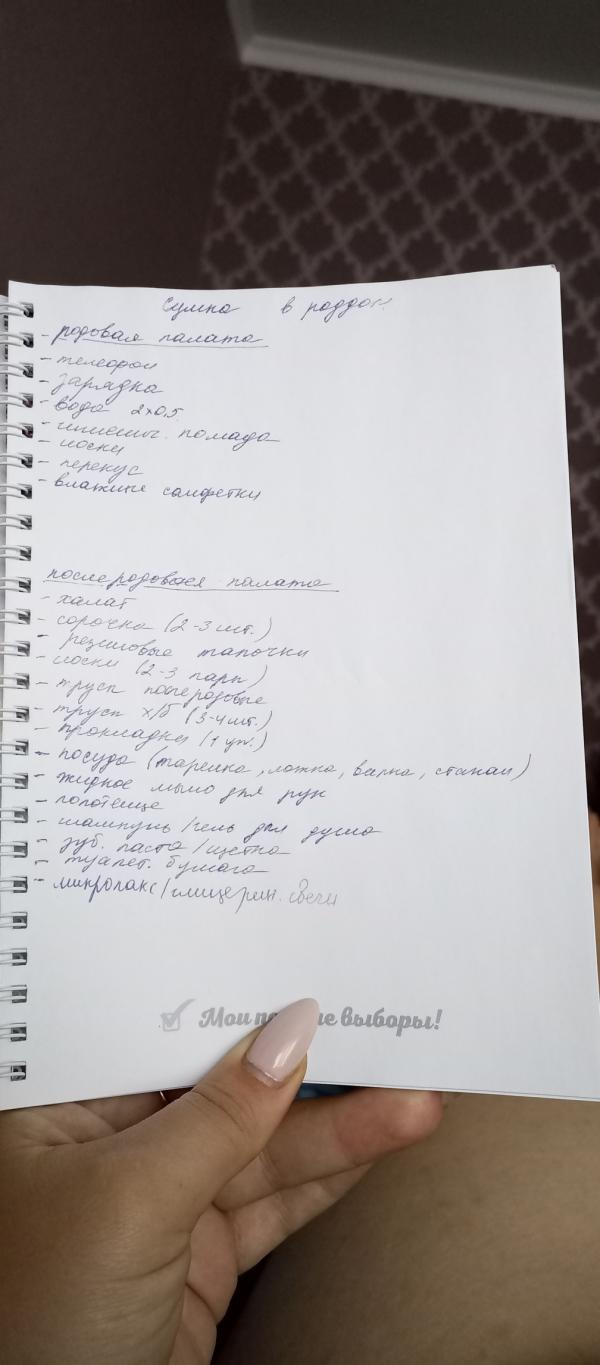 Сумка в роддом
- родовая палата
- телефон
- зарядка
- вода 2х0,5
- гигиенич. помада
- носки
- перекус
- влажные салфетки
послеродовая палата
- халат
- сорочка (2-3 шт.)
- резиновые тапочки
- носки (2-3 пары)
- трусы послеродовые
- трусы х/б (3-4 шт.)
- прокладки (1 уп.)
- посуда (тарелка, ложка, вилка, стакан)
- жидкое мыло для рук
- полотенце
- шампунь/гель для душа
- зуб. паста/щетка
- туалет. бумага
- микролакс/глицерин. свечи
Мои выборы!